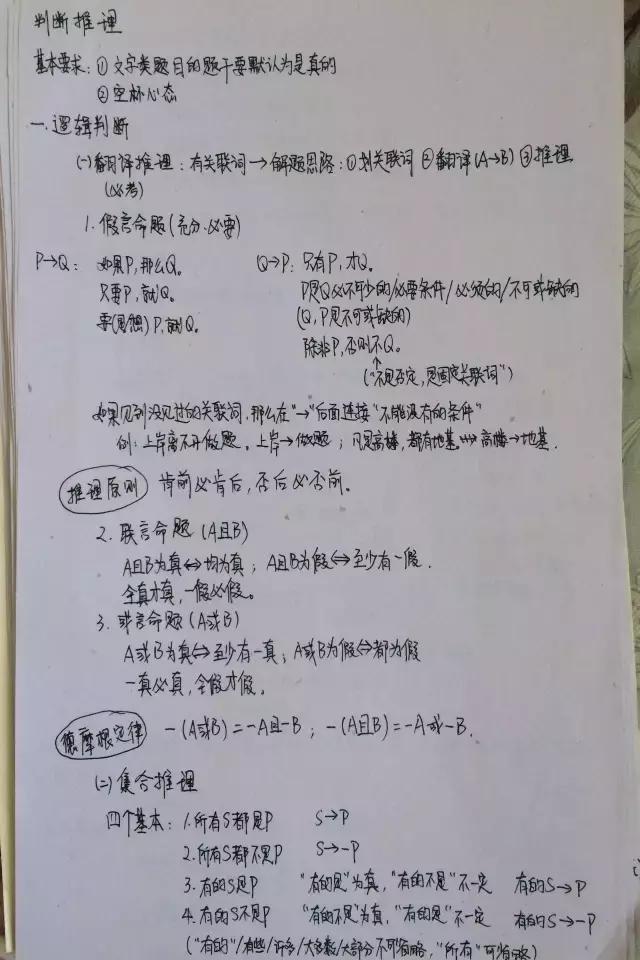 判断推理
基本要求：①文字类题目的题干要默认为是真的
②空杯心态
一.逻辑判断
(一)翻译推理：有关联词→解题思路：①划关联词 ②翻译(A→B) ③推理
(必考)
1.假言命题(充分、必要)
P→Q： 如果P,那么Q。 Q→P：只有P,才Q。
只要P,就Q。 P是Q必不可少的/必要条件/必须的/不可或缺的
要(想)P,就Q。 (Q,P是不可或缺的)
除非P,否则不Q。
↑
("不"是否定,是固定关联词")
如果见到没见过的关联词,那么在"→"后面连接"不能没有的条件"
例：上岸离不开做题。上岸→做题；凡是高楼,都有地基⇝高楼→地基.
推理原则 肯前必肯后,否后必否前。
2.联言命题(A且B)
A且B为真⇔均为真；A且B为假⇔至少有一假.
全真才真,一假必假。
3.或言命题(A或B)
A或B为真⇔至少有一真；A或B为假⇔都为假
一真必真,全假才假。
德摩根定律 -(A或B)=-A且-B；-(A且B)=-A或-B.
(二)集合推理
四个基本：1.所有S都是P S→P
2.所有S都不是P S→-P
3.有的S是P "有的是"为真,"有的不是"不一定 有的S→P
4.有的S不是P "有的不是"为真,"有的是"不一定 有的S→-P
("有的"/有些/许多/大多数/大部分不可省略,"所有"可省略)